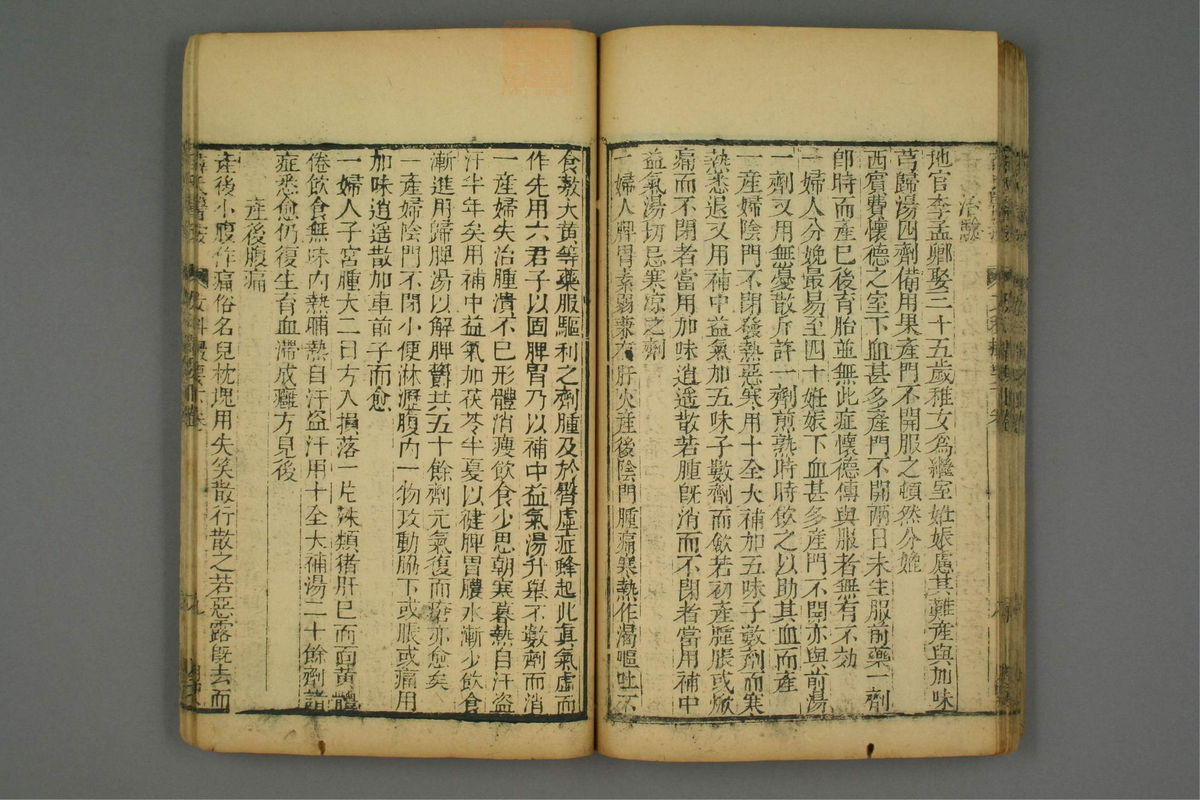 治驗
地官李孟卿娶三十五歲稚女為繼室妊娠慮其難產與加味
芎歸湯四劑備用果產門不開服之頓然分娩
西賓費懷德之室下血甚多產門不開兩日未生服前藥一劑
卽時而產巳後育胎並無此症懷德傳與服者無有不効
一婦人分娩最易至四十妊娠下血甚多產門不開亦與前湯
一劑又用無憂散斤許一劑煎熟時時飲之以助其血而產
一產婦陰門不閉發熱惡寒用十全大補加五味子數劑而寒
熱悉退又用補中益氣加五味子數劑而歛若初產腫脹或焮
痛而不閉者當用加味逍遥散若腫旣消而不閉者當用補中
益氣湯切忌寒凉之劑
一婦人脾胃素弱兼有肝火產後陰門腫痛寒熱作渴嘔吐不
食敷大黃等藥服驅利之劑腫及於臀虛症蜂起此眞氣虛而
作先用六君子以固脾胃乃以補中益氣湯升舉不數劑而消
一產婦失治腫潰不巳形體消瘦飲食少思朝寒暮熱自汗盗
汗半年矣用補中益氣加茯苓半夏以健脾胃膿水漸少飲食
漸進用歸脾湯以解脾欝共五十餘劑元氣復而瘡亦愈矣
一產婦陰門不閉小便淋瀝腹內一物攻動脇下或脹或痛用
加味逍遥散加車前子而愈
一婦人子宮腫大二日方入損落一片殊類猪肝巳而面黃體
倦飲食無味內熱晡熱自汗盗汗用十全大補湯二十餘劑諸
症悉愈仍復生育血滯成癰方見後
產後腹痛
產後小腹作痛俗名兒枕塊用失笑散行散之若惡露旣去而